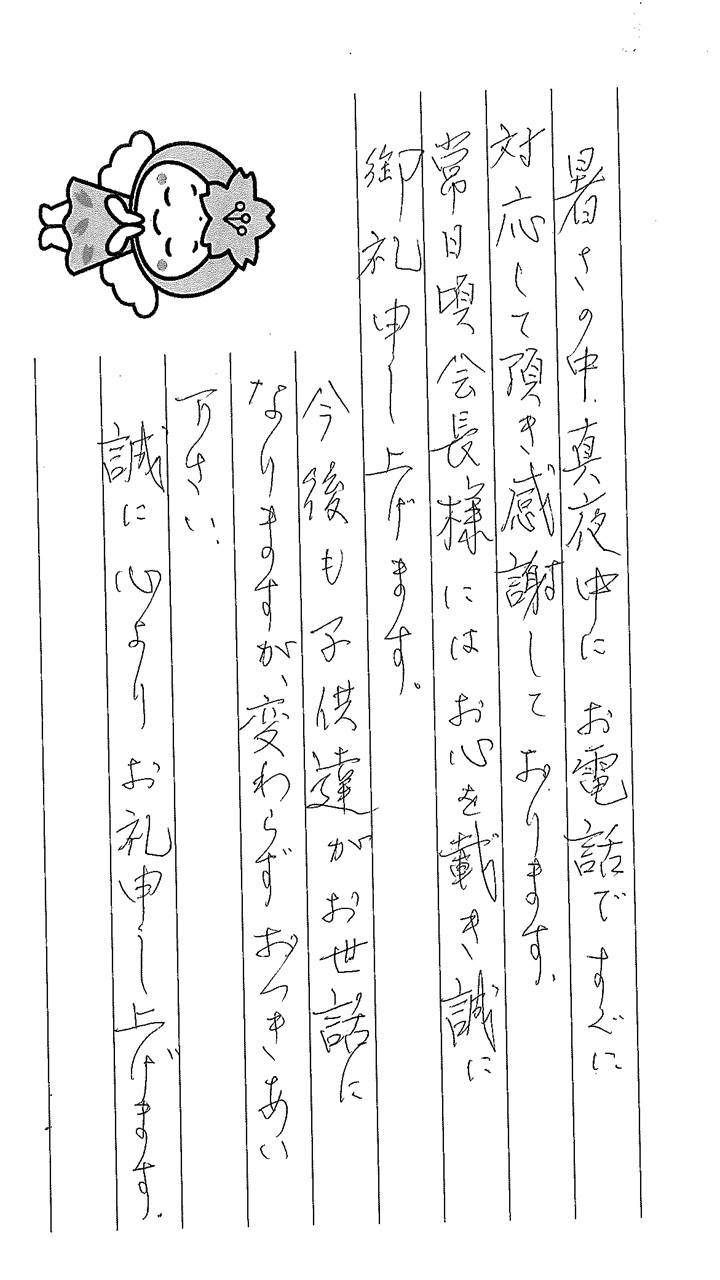 暑さの中、真夜中にお電話ですぐに
対応して頂き感謝しております。
常日頃会長様にはお心を載き誠に
御礼申し上げます。
今後も子供達がお世話に
なりますが、変わらずおつきあい
下さい。
誠に心よりお礼申し上げます。